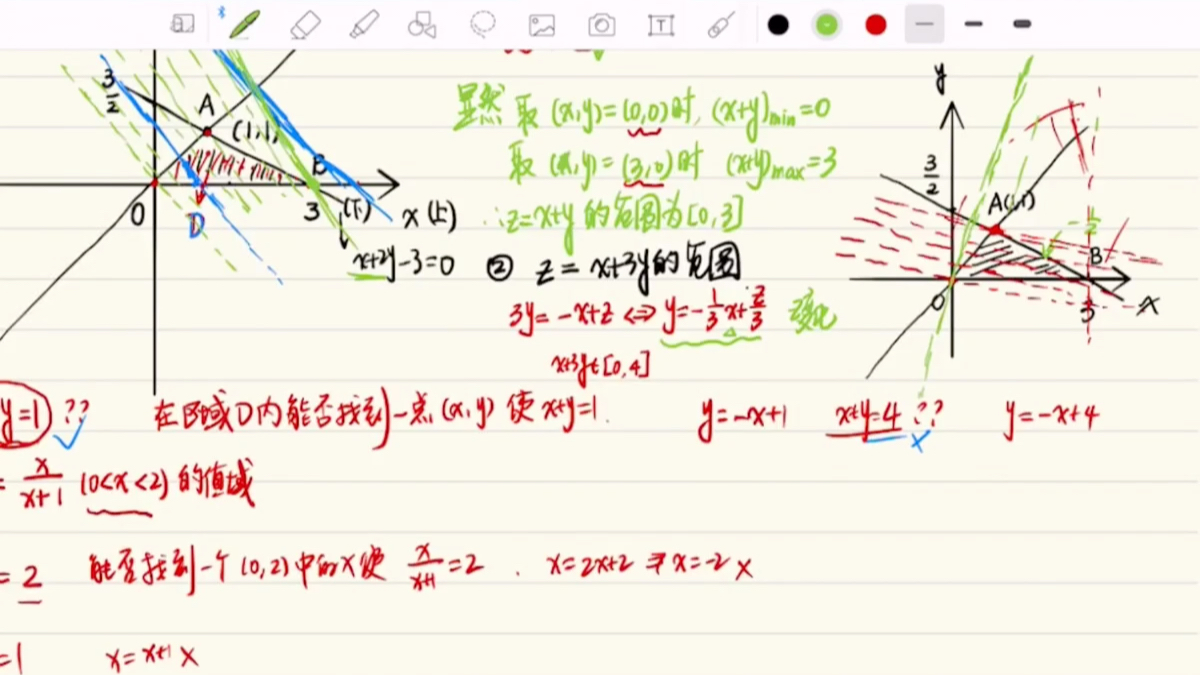 T
3/2
A
(1,1)
B
0
D
3
(下)
x (上)
x+2y-3=0
显然 取 (x,y)=(0,0)时, (x+y)min=0
取 (x,y)=(3,0)时 (x+y)max=3
∴z=x+y 的范围为[0,3]
② z=x+3y的范围
3y=-x+z⇔y=-1/3x+z/3 变化
x+3y∈[0,4]
y
3/2
A(1,1)
-1/2
B
0
3
x
y=1 ?? 在区域D内能否找到一点(x,y)使x+y=1. y=-x+1 x+y=4 ?? y=-x+4
= x/(x+1) (0<x<2)的值域
=2 能否找到一个(0,2)中的x使 x/(x+1)=2 . x=2x+2 ⇒x=-2 ×
=1 x=x+1 ×